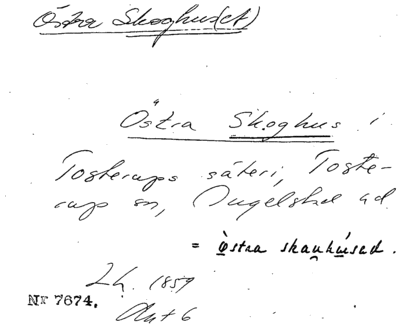 Östra Skoghus(et)
Östra Skoghus i
Tosterups säteri, Toste-
rup sn, Ingelstad hd
= östra skauhúsed.
Lh. 1859
Nr 7674.
Akt 6